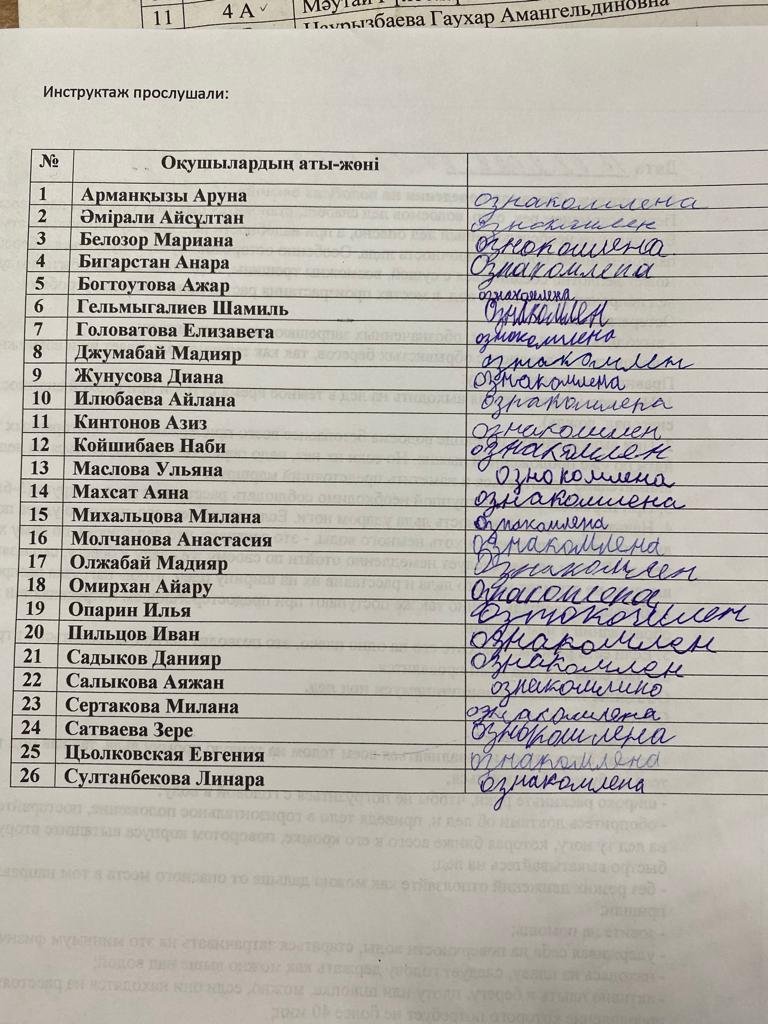 11 4 А
Наурызбаева Гаухар Амангельдиновна
Инструктаж прослушали:
№ Оқушылардың аты-жөні
1 Арманқызы Аруна ознакомлена
2 Әмірали Айсұлтан
3 Белозор Мариана ознокомлена
4 Бигарстан Анара Ознакомлена
5 Богтоутова Ажар ознакомлена
6 Гельмыгалиев Шамиль Ознакомлен
7 Головатова Елизавета ознакомлена
8 Джумабай Мадияр ознакомлен
9 Жунусова Диана ознакомлена
10 Илюбаева Айлана ознакомлена
11 Кинтонов Азиз ознакомлен
12 Койшибаев Наби ознакомлен
13 Маслова Ульяна Ознокомлена
14 Махсат Аяна ознакомлена
15 Михальцова Милана ознакомлена
16 Молчанова Анастасия Ознакомлена
17 Олжабай Мадияр Ознакомлен
18 Омирхан Айару Ознакомлена
19 Опарин Илья
20 Пильцов Иван ознакомлен
21 Садыков Данияр ознакомлен
22 Салыкова Аяжан ознакомлино
23 Сертакова Милана ознакомлена
24 Сатваева Зере
25 Цьолковская Евгения ознакомлена
26 Султанбекова Линара ознакомлена